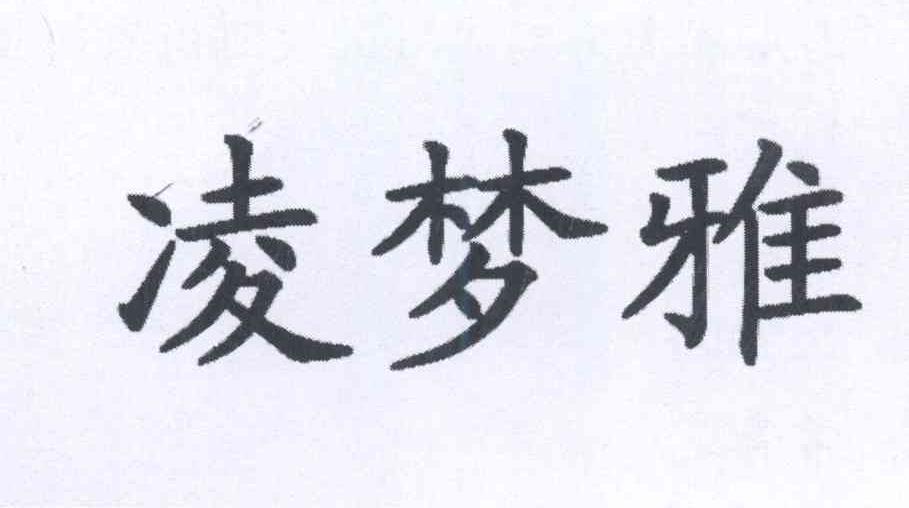 凌梦雅